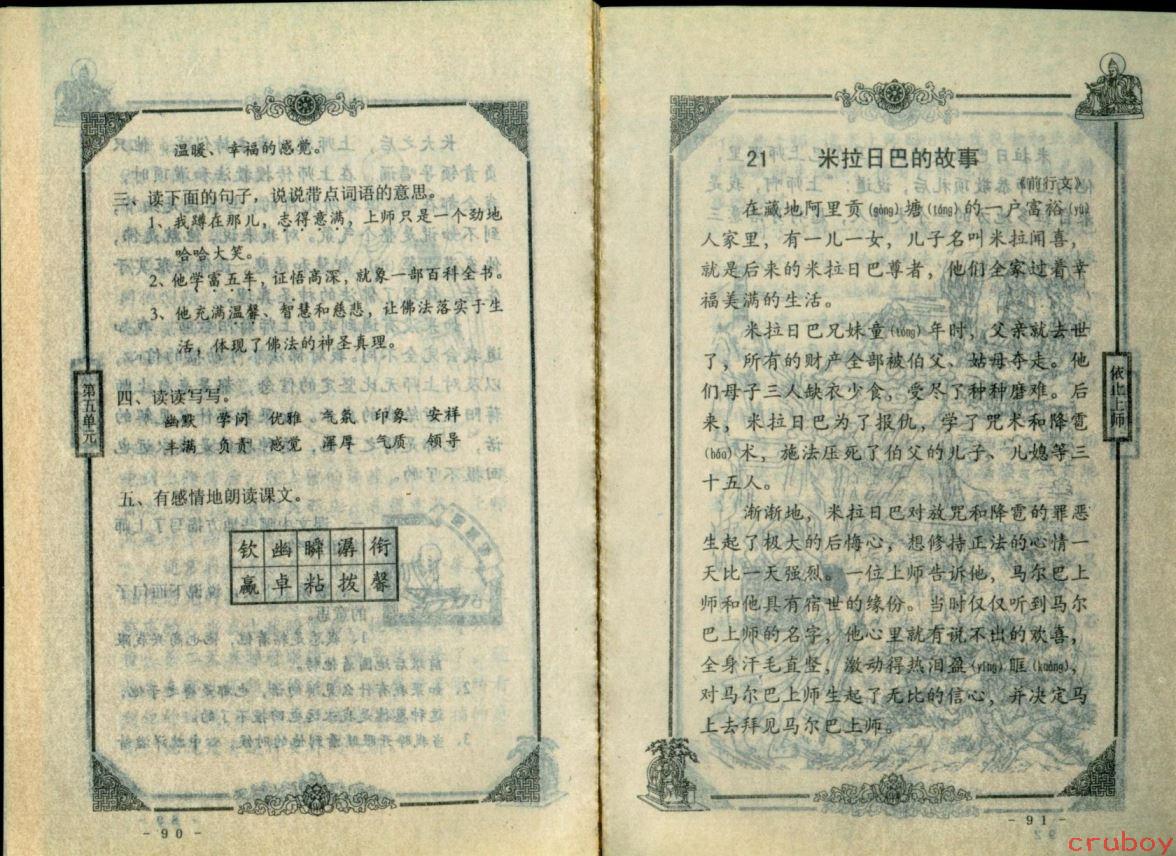 温暖、幸福的感觉。
三、读下面的句子，说说带点词语的意思。
1、我蹲在那儿，志得意满，上师只是一个劲地
哈哈大笑。
2、他学富五车，证悟高深，就象一部百科全书。
3、他充满温馨、智慧和慈悲，让佛法落实于生
活，体现了佛法的神圣真理。
四、读读写写。
幽默 学问 优雅 气氛 印象 安祥
丰满 负责 感觉 浑厚 气质 领导
五、有感情地朗读课文。
钦 幽 瞬 潺 衔
赢 卓 粘 拨 馨
第五单元
- 90 -
21 米拉日巴的故事
《前行文》
在藏地阿里贡(gòng)塘(táng)的一户富裕(yù)
人家里，有一儿一女，儿子名叫米拉闻喜，
就是后来的米拉日巴尊者，他们全家过着幸
福美满的生活。
米拉日巴兄妹童(tóng)年时，父亲就去世
了，所有的财产全部被伯父、姑母夺走。他
们母子三人缺衣少食，受尽了种种磨难。后
来，米拉日巴为了报仇，学了咒术和降雹
(báo)术，施法压死了伯父的儿子、儿媳等三
十五人。
渐渐地，米拉日巴对放咒和降雹的罪恶
生起了极大的后悔心，想修持正法的心情一
天比一天强烈。一位上师告诉他，马尔巴上
师和他具有宿世的缘份。当时仅仅听到马尔
巴上师的名字，他心里就有说不出的欢喜，
全身汗毛直竖，激动得热泪盈(yíng)眶(kuàng)，
对马尔巴上师生起了无比的信心，并决定马
上去拜见马尔巴上师。
依止上师
- 91 -
cruboy